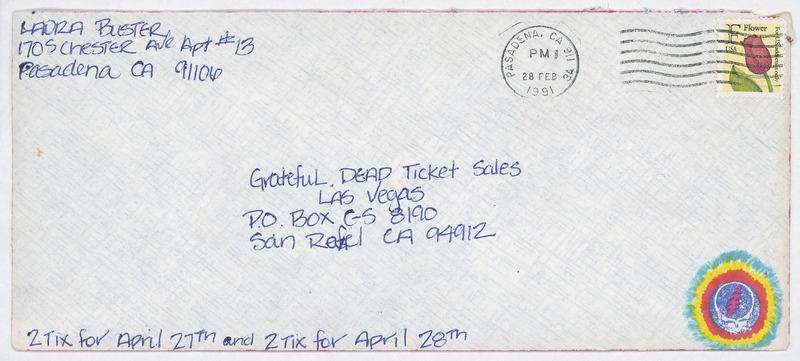 LAURA BUSTER
170 S CHESTER Ave Apt #13
Pasadena CA 91106
PASADENA, CA 911
PM
28 FEB
1991
3A
F Flower
USA
Grateful DEAD Ticket Sales
LAS Vegas
P.O. BOX C-S 8190
San Rafel CA 94912
2 Tix for April 27TH and 2 Tix for April 28TH